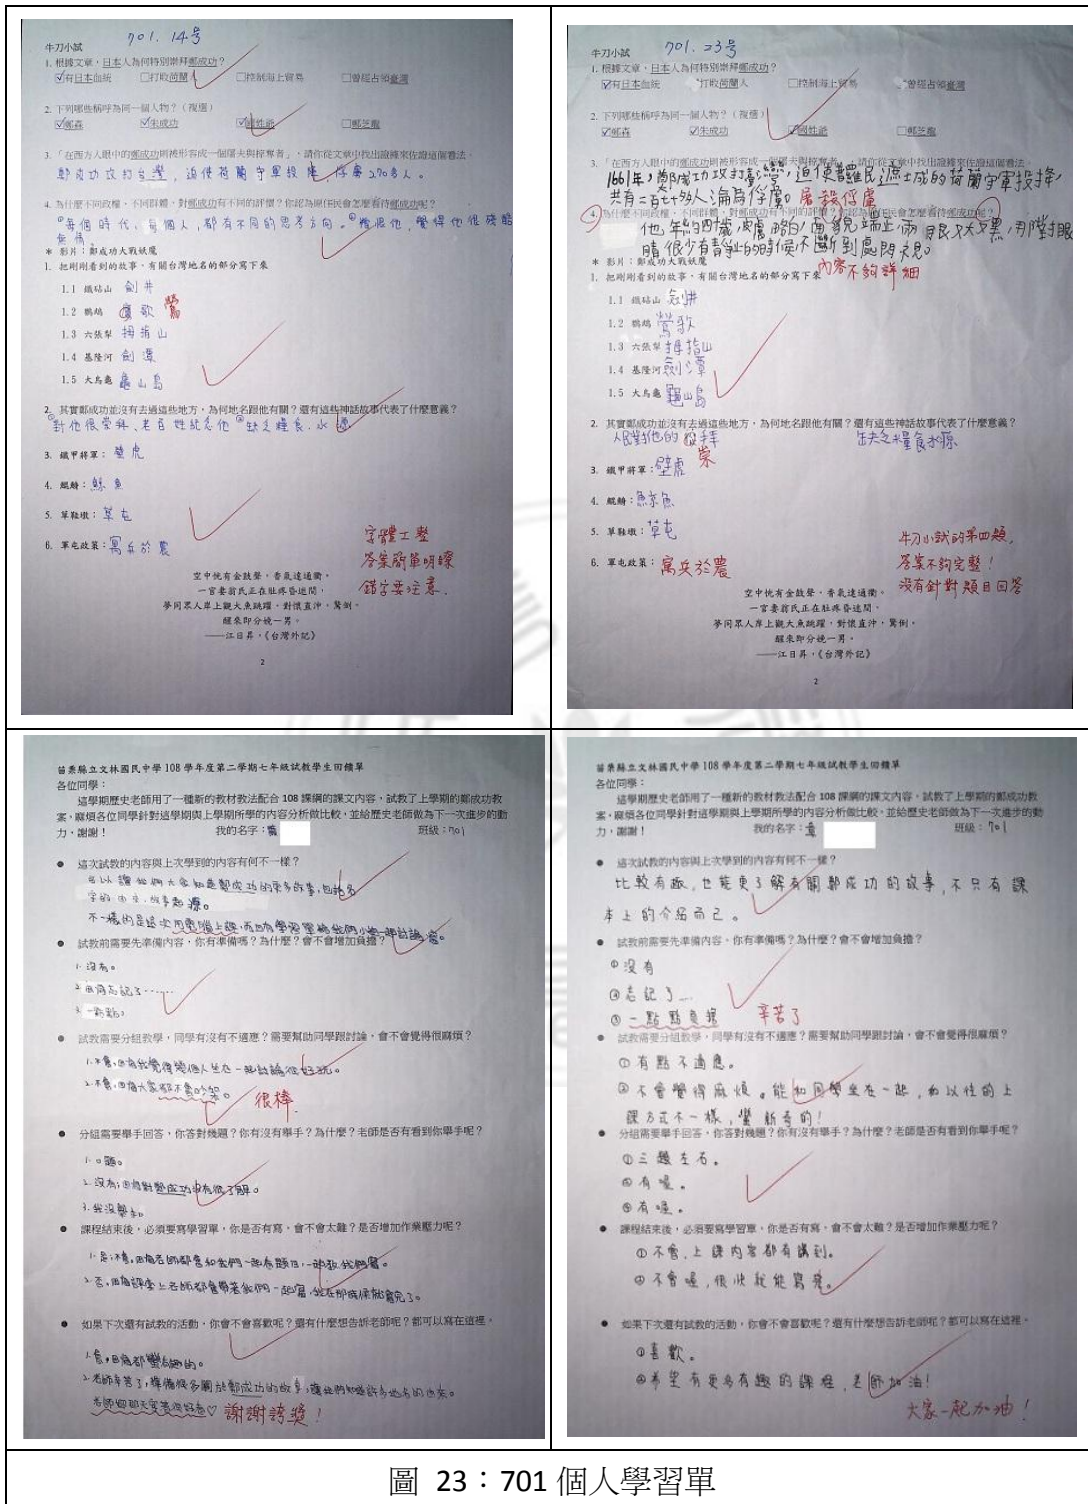 701. 14号
牛刀小試
1. 根據文章，日本人為何特別崇拜鄭成功？
☑有日本血統 □打敗荷蘭人 □控制海上貿易 □曾經占領臺灣
2. 下列哪些稱呼為同一個人物？（複選）
☑鄭森 ☑朱成功 ☑國姓爺 □鄭芝龍
3. 「在西方人眼中的鄭成功則被形容成一個屠夫與掠奪者」，請你從文章中找出證據來佐證這個看法。
鄭成功攻打台灣，迫使荷蘭守軍投降，俘虜270多人。
4. 為什麼不同政權、不同群體，對鄭成功有不同的評價？你認為原住民會怎麼看待鄭成功呢？
①每個時代、每個人，都有不同的思考方向。②
無情。
* 影片：鄭成功大戰妖魔
1. 把剛剛看到的故事，有關台灣地名的部分寫下來
1.1 鐵砧山 劍井
1.2 鸚鵡 鶯歌 鶯
1.3 六張犁 拇指山
1.4 基隆河 劍潭
1.5 大烏龜 龜山島
2. 其實鄭成功並沒有去過這些地方，為何地名跟他有關？還有這些神話故事代表了什麼意義？
①對他很崇拜、老百姓紀念他 ②缺乏糧食、水源
3. 鐵甲將軍：壁虎
4. 鯤鯓：鯨魚
5. 草鞋墩：草屯
6. 軍屯政策：寓兵於農
字體工整
答案簡單明瞭
錯字要注意.
空中恍有金鼓聲，香氣達通衢。
一官妻翁氏正在肚疼昏迷間，
夢同眾人岸上觀大魚跳躍，對懷直沖，驚倒。
醒來即分娩一男。
——江日昇，《台灣外記》
2
701. 23号
牛刀小試
1. 根據文章，日本人為何特別崇拜鄭成功？
☑有日本血統 打敗荷蘭人 □控制海上貿易 曾經占領臺灣
2. 下列哪些稱呼為同一個人物？（複選）
☑鄭森 ☑朱成功 ☑國姓爺 □鄭芝龍
3. 「在西方人眼中的鄭成功則被形容成一個屠夫與掠奪者」，請你從文章中找出證據來佐證這個看法。
1661年，鄭成功攻打臺灣，迫使普羅民遮城的荷蘭守軍投降，
共有二百七十多人淪為俘虜。屠殺俘虜
4. 為什麼不同政權、不同群體，對鄭成功有不同的評價？你認為原住民會怎麼看待鄭成功呢？
他年約四十歲，皮膚略白，面貌端正，兩眼又大又黑，那對眼
睛很少有靜止的時候，不斷到處閃視。
內容不夠詳細
* 影片：鄭成功大戰妖魔
1. 把剛剛看到的故事，有關台灣地名的部分寫下來
1.1 鐵砧山 劍井
1.2 鸚鵡 鶯歌
1.3 六張犁 拇指山
1.4 基隆河 劍潭
1.5 大烏龜 龜山島
2. 其實鄭成功並沒有去過這些地方，為何地名跟他有關？還有這些神話故事代表了什麼意義？
人民對他的拜 崇 缺乏糧食水源
3. 鐵甲將軍：壁虎
4. 鯤鯓：鯨魚
5. 草鞋墩：草屯
6. 軍屯政策：寓兵於農
牛刀小試的第四題，
答案不夠完整！
沒有針對題目回答
空中恍有金鼓聲，香氣達通衢。
一官妻翁氏正在肚疼昏迷間，
夢同眾人岸上觀大魚跳躍，對懷直沖，驚倒。
醒來即分娩一男。
——江日昇，《台灣外記》
2
苗栗縣立文林國民中學 108 學年度第二學期七年級試教學生回饋單
各位同學：
這學期歷史老師用了一種新的教材教法配合 108 課綱的課文內容，試教了上學期的鄭成功教
案，麻煩各位同學針對這學期與上學期所學的內容分析做比較，並給歷史老師做為下一次進步的動
力，謝謝！ 我的名字： 班級：701
● 這次試教的內容與上次學到的內容有何不一樣？
可以讓我們大家知道鄭成功的更多故事，包括名
字的由來，故事起源。
不一樣的是這次用電腦上課，而且有學習單給我們小組一起討論寫。
● 試教前需要先準備內容，你有準備嗎？為什麼？會不會增加負擔？
1. 沒有。
2. 因為忘記了……
3. 一點點。
● 試教需要分組教學，同學有沒有不適應？需要幫助同學跟討論，會不會覺得很麻煩？
1. 不會，因為我覺得幾個人坐在一起討論很好玩。
2. 不會，因為大家都不會吵架。
很棒
● 分組需要舉手回答，你答對幾題？你有沒有舉手？為什麼？老師是否有看到你舉手呢？
1. 0題。
2. 沒有，因為對鄭成功沒有很了解。
3. 我沒舉手。
● 課程結束後，必須要寫學習單，你是否有寫，會不會太難？是否增加作業壓力呢？
1. 是，不會，因為老師都會和我們一起看題目，一起教我們寫。
2. 否，因為課堂上老師都會帶著我們一起寫，就在那時候就寫完了。
● 如果下次還有試教的活動，你會不會喜歡呢？還有什麼想告訴老師呢？都可以寫在這裡。
1. 會，因為都蠻有趣的。
2. 老師辛苦了，準備很多關於鄭成功的故事，讓我們知道許多地名的由來。
老師您那天穿著很好看♡ 謝謝誇獎！
苗栗縣立文林國民中學 108 學年度第二學期七年級試教學生回饋單
各位同學：
這學期歷史老師用了一種新的教材教法配合 108 課綱的課文內容，試教了上學期的鄭成功教
案，麻煩各位同學針對這學期與上學期所學的內容分析做比較，並給歷史老師做為下一次進步的動
力，謝謝！ 我的名字： 班級：701
● 這次試教的內容與上次學到的內容有何不一樣？
比較有趣，也能更了解有關鄭成功的故事，不只有課
本上的介紹而已。
● 試教前需要先準備內容，你有準備嗎？為什麼？會不會增加負擔？
①沒有
②忘記了…
③一點點負擔 辛苦了
● 試教需要分組教學，同學有沒有不適應？需要幫助同學跟討論，會不會覺得很麻煩？
①有點不適應。
②不會覺得麻煩。能和同學坐在一起，和以往的上
課方式不一樣，蠻新奇的！
● 分組需要舉手回答，你答對幾題？你有沒有舉手？為什麼？老師是否有看到你舉手呢？
①三題左右。
②有喔。
③有喔。
● 課程結束後，必須要寫學習單，你是否有寫，會不會太難？是否增加作業壓力呢？
①不會，上課內容都有講到。
②不會喔，很快就能寫完。
● 如果下次還有試教的活動，你會不會喜歡呢？還有什麼想告訴老師呢？都可以寫在這裡。
①喜歡。
②希望有更多有趣的課程，老師加油！
大家一起加油！
圖 23：701 個人學習單